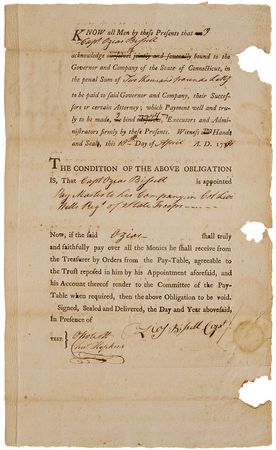 KNOW all Men by these Presents that I
Capt Ozias Bissell
acknowledge myself jointly and severally bound to the
Governor and Company of the State of Connecticut, in
the penal Sum of Two thousand pounds
to be paid to said Governor and Company, their Succes-
sors or certain Attorney; which Payment well and tru-
ly to be made, I bind myself Executors and Admi-
nistrators firmly by these Presents. Witness Hands
and Seals, this 10th Day of April A. D. 1781
THE CONDITION OF THE ABOVE OBLIGATION
IS, That Capt Ozias Bissell is appointed
Pay Master to his Company, in Col Levi
Wells Regt of State Troops
Now, if the said Ozias shall truly
and faithfully pay over all the Monies he shall receive from
the Treasurer by Orders from the Pay-Table, agreeable
to the Trust reposed in him by his Appointment aforesaid, and
his Account thereof render to the Committee of the Pay-
Table when required, then the above Obligation to be void.
Signed, Sealed and Delivered, the Day and Year abovesaid,
In Presence of
Ozs Bissell Capt
TEST:
Hopkins